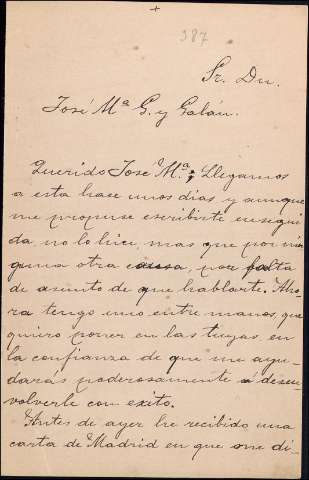 +
387
Sr. Dn.
José Mª G. y Galán.
Querido José Mª; Llegamos
a esta hace unos dias y aunque
me propuse escribirte ensegui
da, no lo hice, mas que por nin
guna otra causa, por falta
de asunto de que hablarte. Aho
ra tengo uno entre manos, que
quiero poner en las tuyas en
la confianza de que me ayu-
darás poderosamente á desen-
volverle con exito.
Antes de ayer he recibido una
carta de Madrid en que me di-